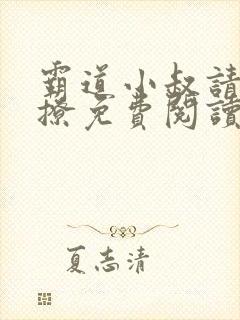 霸道小叔請
撩免費閱讀
夏志清